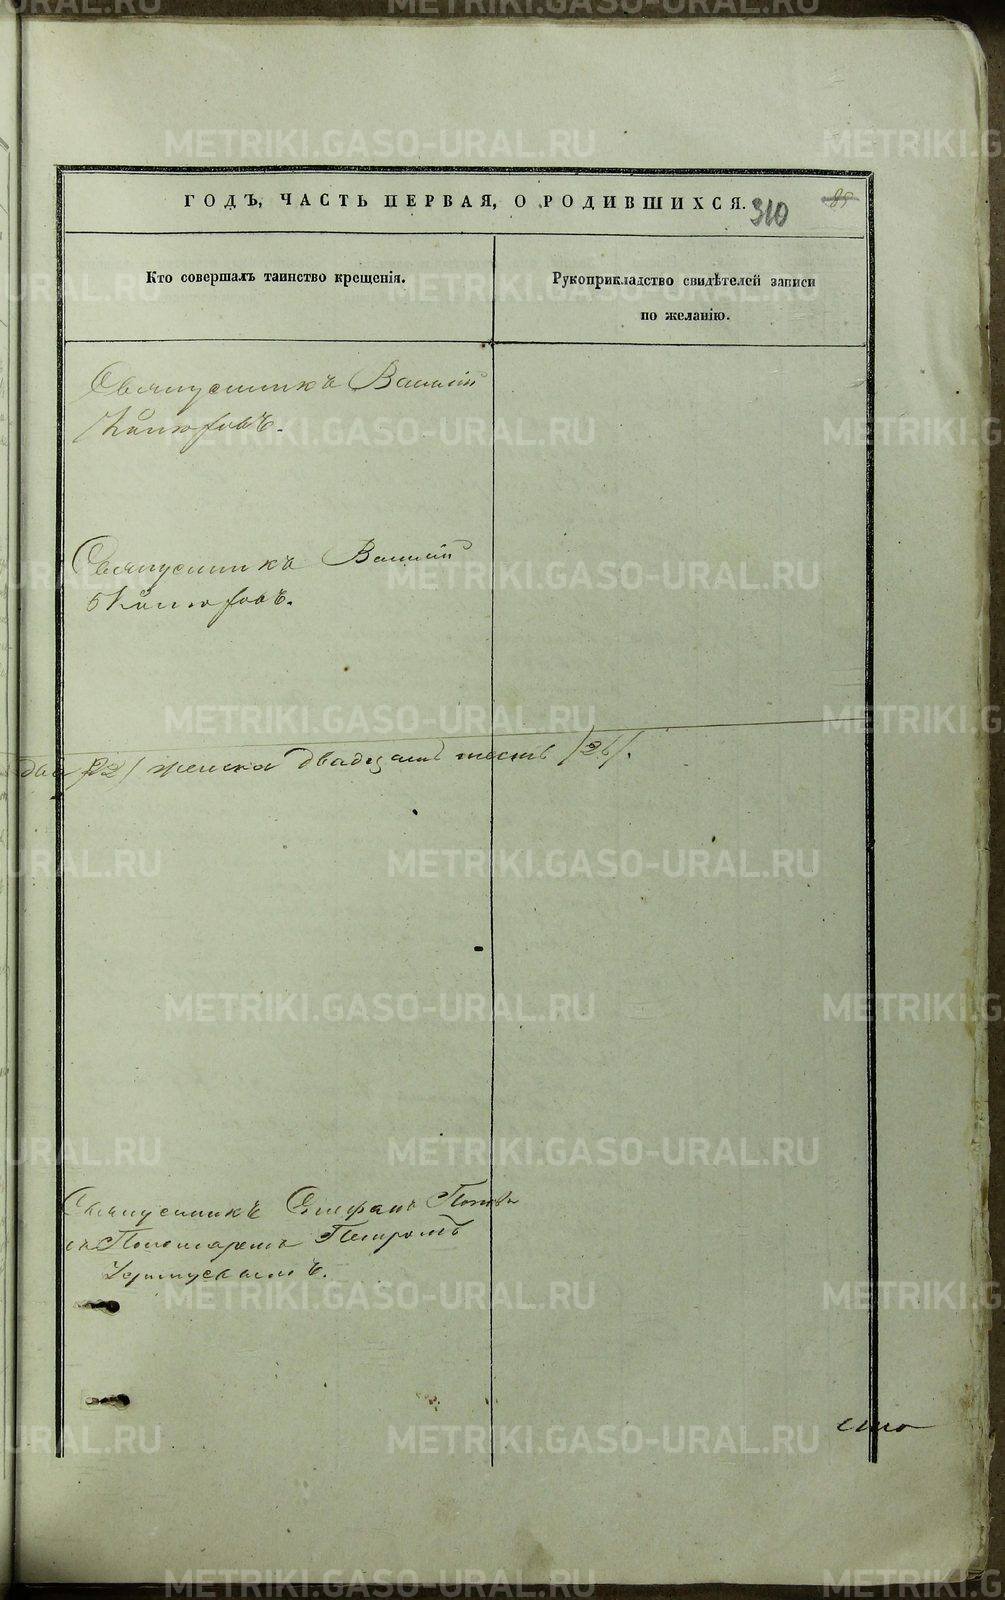 ГОДЪ, ЧАСТЬ ПЕРВАЯ, О РОДИВШИХСЯ.
310
Кто совершалъ таинство крещенія.
Рукоприкладство свидѣтелей записи
по желанію.
Священникъ Василій
Священникъ Василій
два /22/ женска двадцать шесть /26/.
Священникъ Стефанъ Поповъ
съ Пономаремъ Петромъ
сто
METRIKI.GASO-URAL.RU